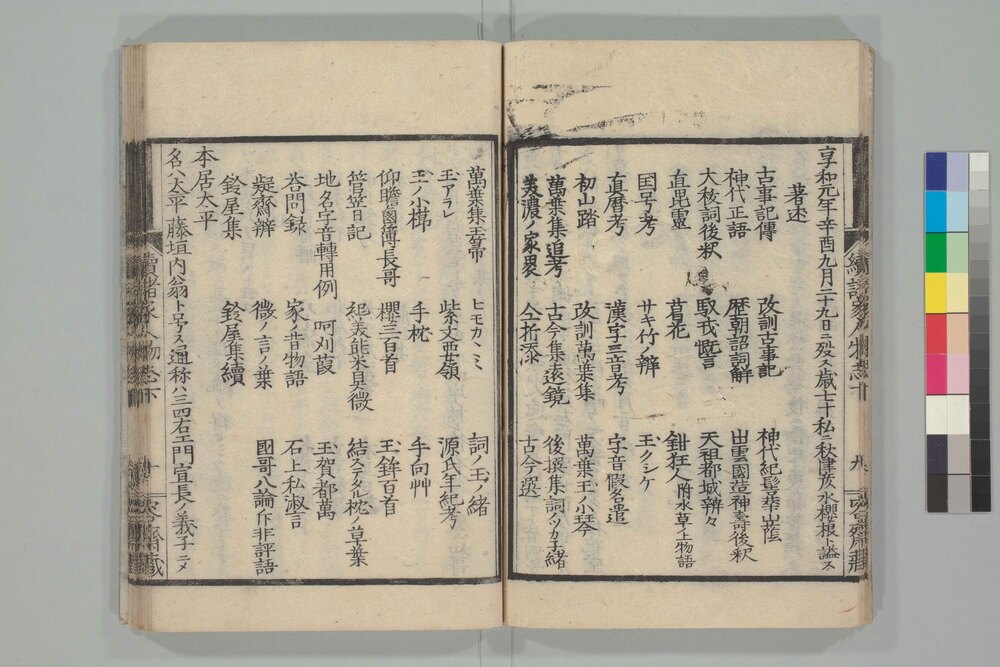 享和元年辛酉九月二十九日ニ歿ス歳七十私ニ秋津彦水櫻根ト謚ス
著述
古事記傳 改訓古事記 神代紀髻華山蔭
神代正語 歴朝詔詞解 出雲國造神壽後釈
大祓詞後釈 馭戎慨言 天祖都城辨々
直毘霊 葛花 鉗狂人 附水草ノ上物語
国号考 サキ竹ノ辨 玉クシケ
真暦考 漢字三音考 字音假名遣
初山踏 改訓萬葉集 萬葉玉ノ小琴
萬葉集追考 古今集遠鏡 後撰集詞ノツカ子緒
美濃ノ家裹 仝折添 古今選
續諸家人物志下 九
萬葉集玉箒 ヒモカヽミ 詞ノ玉ノ緒
玉アラレ 紫文要領 源氏年紀考
玉ノ小櫛 手枕 手向艸
仰瞻鹵簿長哥 櫻三百首 玉鉾百首
菅笠日記 紀美能米具微 結ステタル枕ノ草葉
地名字音轉用例 呵刈葭 玉賀都萬
答問録 家ノ昔物語 石上私淑言
疑齋辨 微ノ言ノ葉 國哥八論斥非評語
鈴屋集 鈴屋集續
本居太平
名ハ太平藤垣内翁ト号ス通称ハ三四右エ門宣長ノ義子ニメ
續諸家人物志下 十